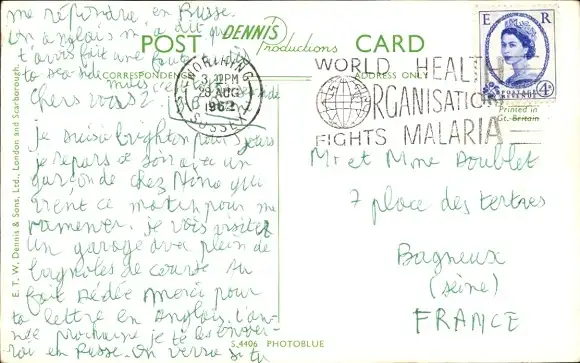 me répondre en Russe.
En anglais m'a dit que
t'avais fait une faute
ta dédé mais ce
POST DENNIS Productions CARD
CORRESPONDENCE ADDRESS ONLY
WORTHING
3. PM
29 AUG
1962
SUSSEX
WORLD HEALTH
ORGANISATION
FIGHTS MALARIA
E R
4D
Printed in
Gt. Britain
Chers vous 2
je suis à Brighton pour 3 jours
je repars ce soir avec un
garçon de chez Nino qui
vient ce matin pour me
ramener. je vois visiter
un garage avec plein de
bagnoles de course. Au
fait Dédée merci pour
ta lettre en Anglais. l'an-
née prochaine je te l'enver-
rai en Russe. On verra si tu
Mr et Mme Doublet
7 place des tertres
Bagneux
(seine)
FRANCE
E. T. W. Dennis & Sons, Ltd., London and Scarborough.
S.4406 PHOTOBLUE